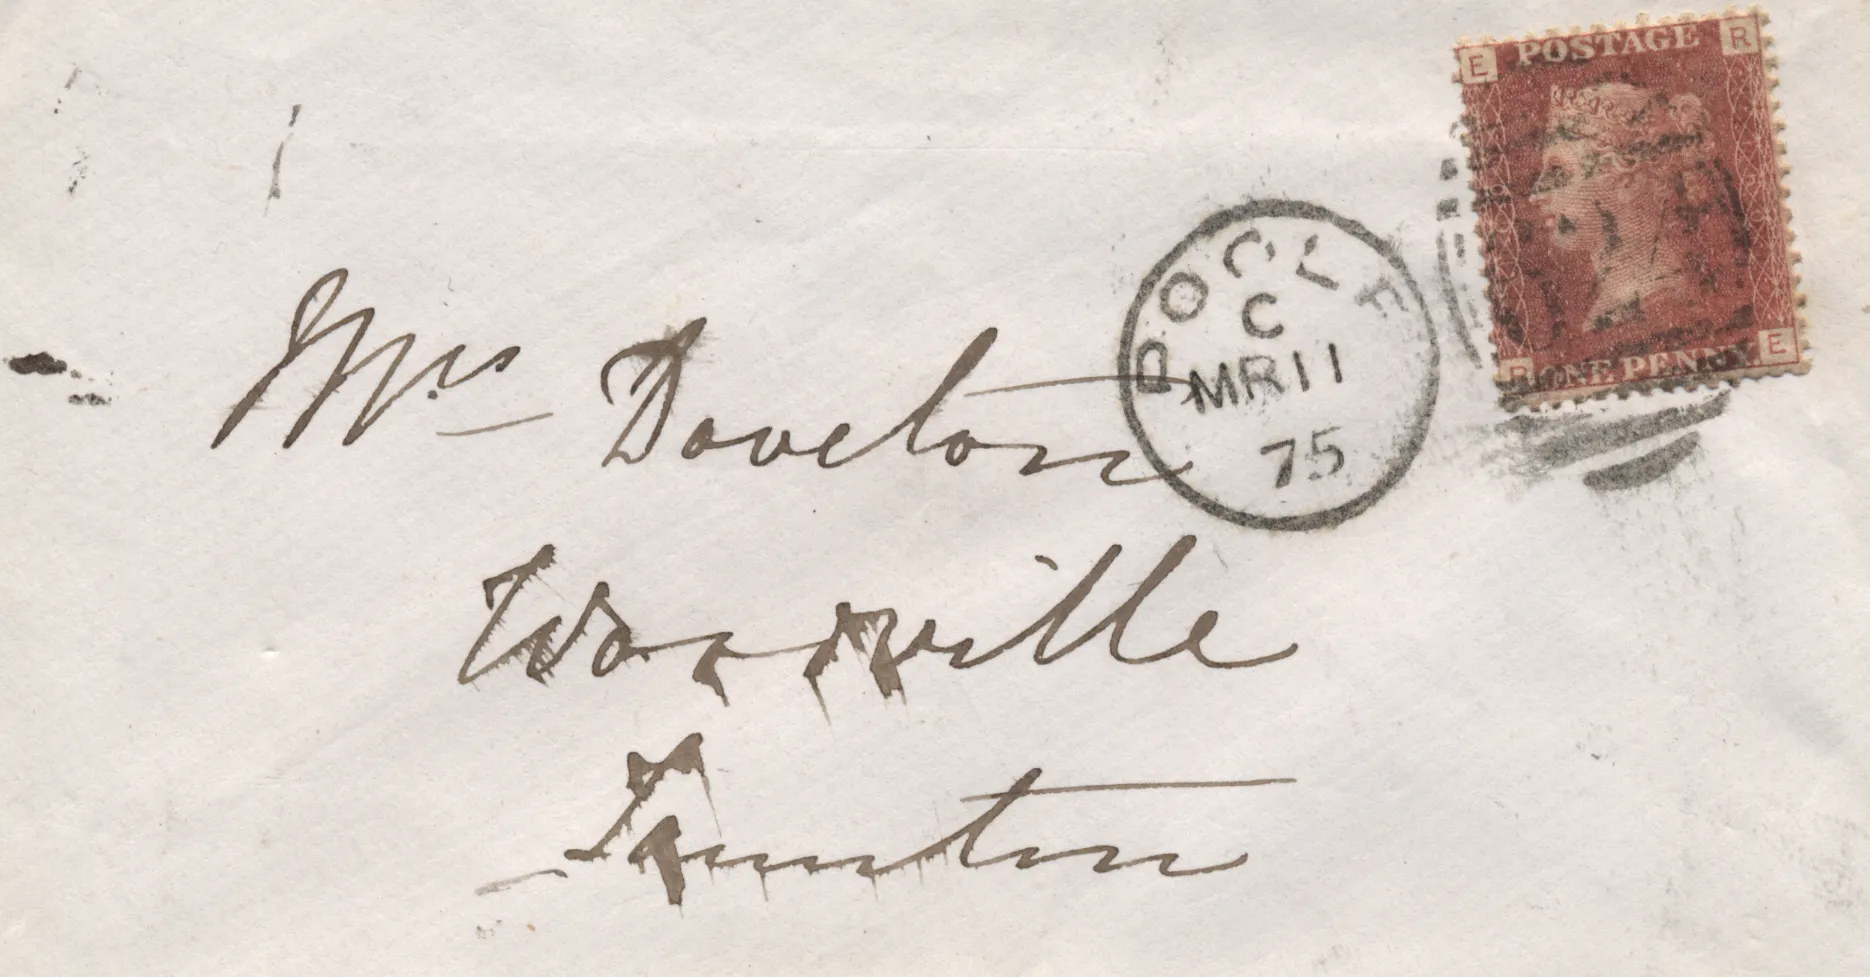 E POSTAGE R
POOLE
C
MR 11
75
R ONE PENNY E
Mrs Doveton
Woodville
Taunton